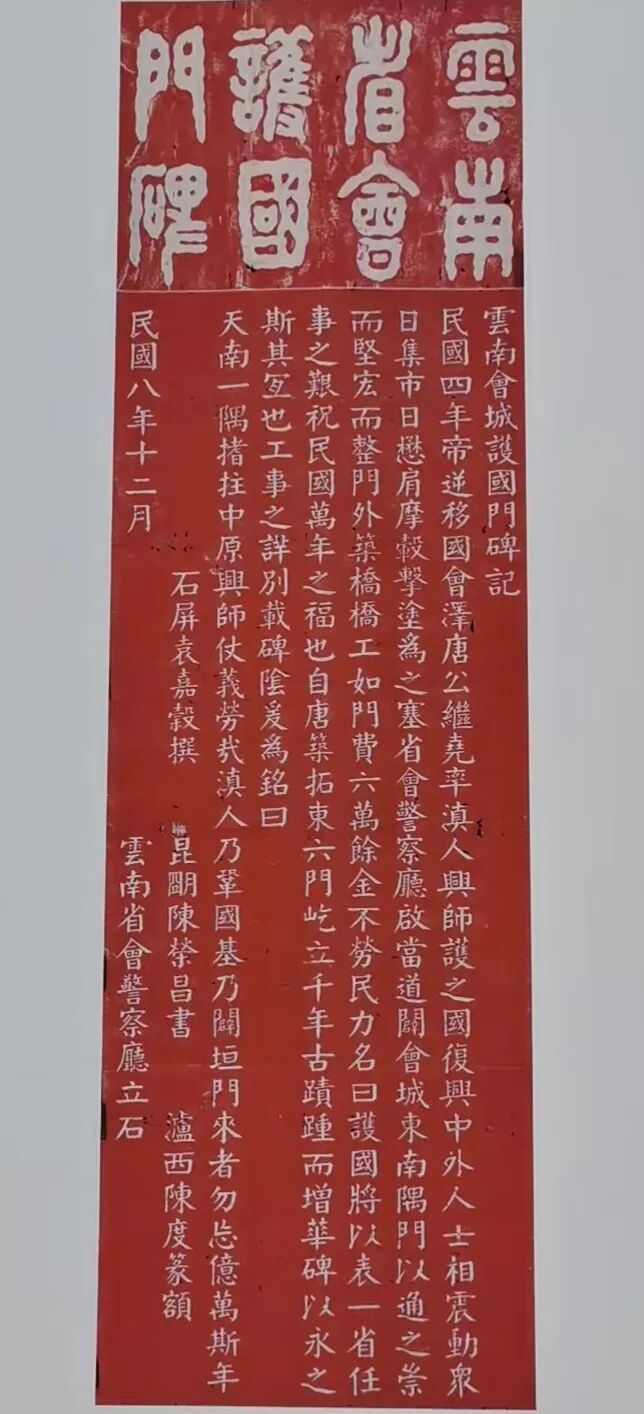 雲南
省會
護國
門碑
雲南會城護國門碑記
民國四年帝逆移國會澤唐公繼堯率滇人興師護之國復興中外人士相震動衆
日集市日懋肩摩轂擊塗爲之塞省會警察廳啟當道闢會城東南隅門以通之崇
而堅宏而整門外築橋橋工如門費六萬餘金不勞民力名曰護國將以表一省任
事之艱祝民國萬年之福也自唐築拓東六門屹立千年古蹟踵而增華碑以永之
斯其宜也工事之詳別載碑陰爰爲銘曰
天南一隅搘拄中原興師仗義勞哉滇人乃鞏國基乃闢垣門來者勿忘億萬斯年
石屏袁嘉穀撰 昆明陳榮昌書 瀘西陳度篆額
民國八年十二月 雲南省會警察廳立石